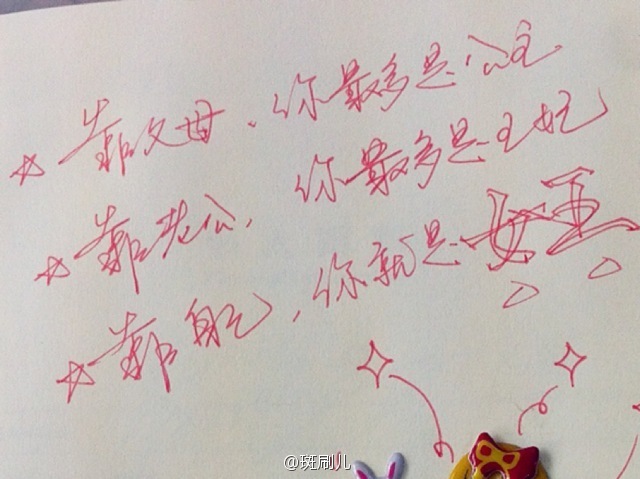 ☆ 靠父母,你最多是公主
☆ 靠老公,你最多是王妃
☆ 靠自己,你就是女王
@斑刷儿